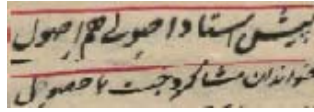 پیش استاد اصولی هم اصول
خواند آن شاگرد چست با حصول